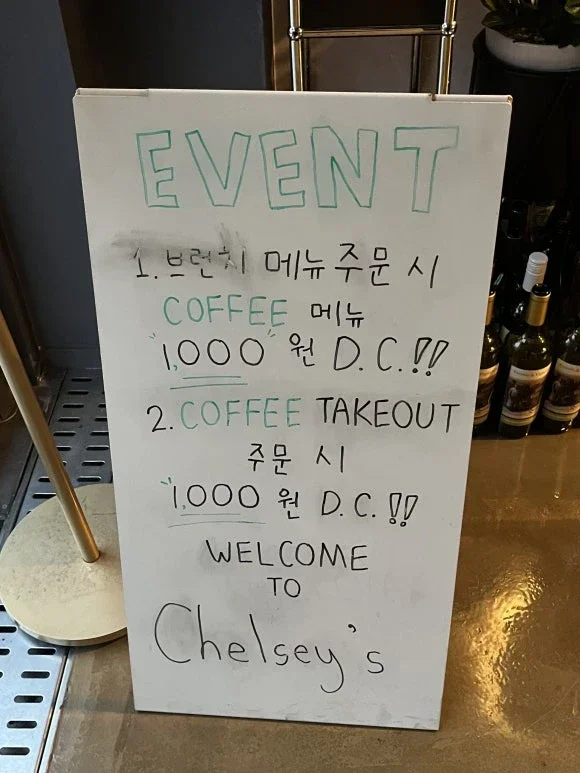 EVENT
1. 브런치 메뉴 주문 시
COFFEE 메뉴
1,000원 D.C.!!
2. COFFEE TAKEOUT
주문 시
1,000원 D.C.!!
WELCOME
TO
Chelsey's